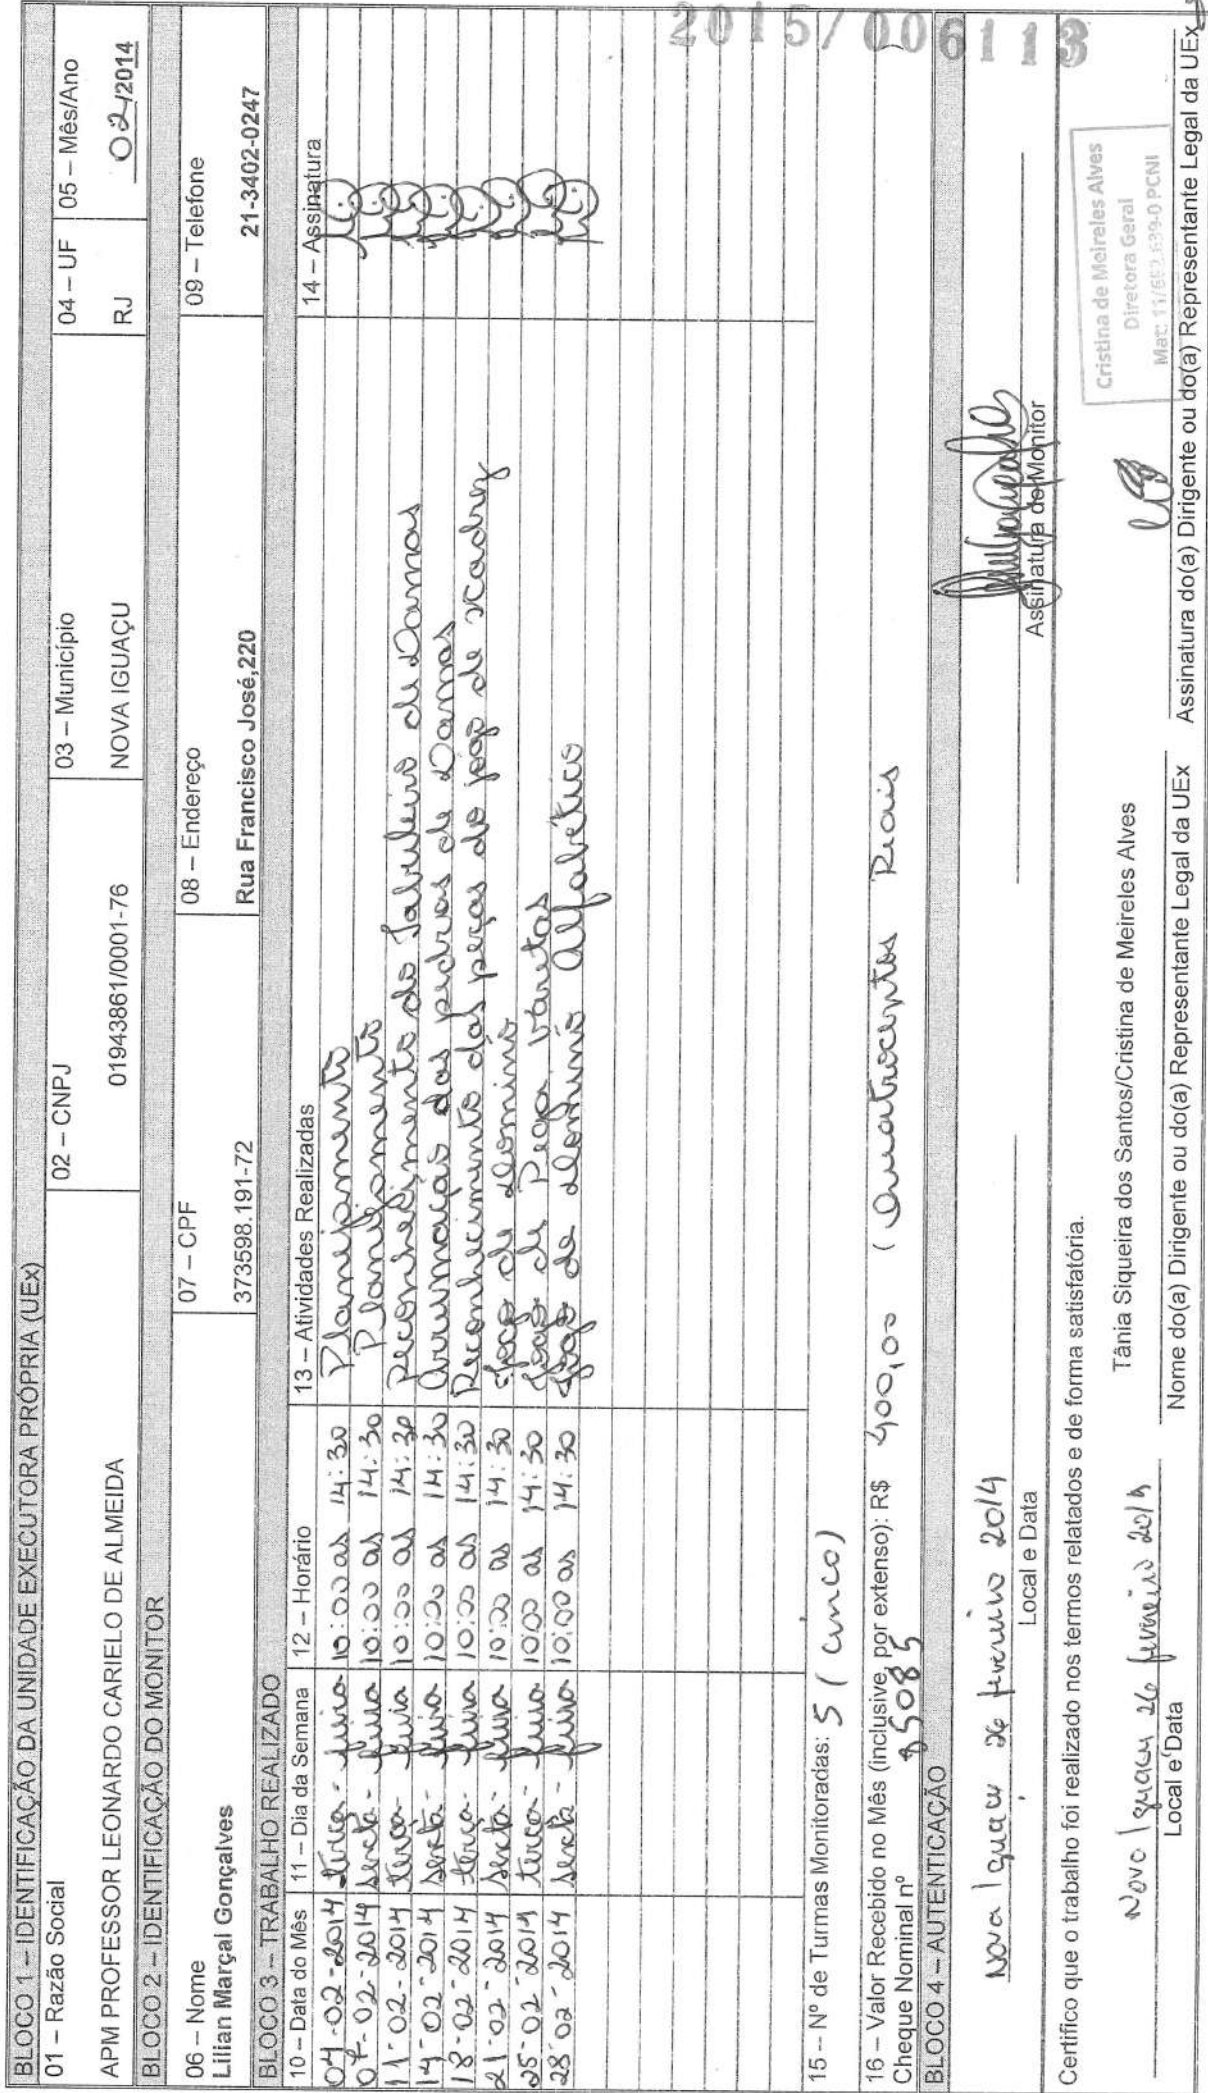 BLOCO 1 – IDENTIFICAÇÃO DA UNIDADE EXECUTORA PRÓPRIA (UEx)
01 – Razão Social 02 – CNPJ 03 – Município 04 – UF 05 – Mês/Ano
APM PROFESSOR LEONARDO CARIELO DE ALMEIDA 01943861/0001-76 NOVA IGUAÇU RJ 02/2014
BLOCO 2 – IDENTIFICAÇÃO DO MONITOR
06 – Nome 07 – CPF 08 – Endereço 09 – Telefone
Lilian Marçal Gonçalves 373598.191-72 Rua Francisco José,220 21-3402-0247
BLOCO 3 – TRABALHO REALIZADO
10 – Data do Mês 11 – Dia da Semana 12 – Horário 13 – Atividades Realizadas 14 – Assinatura
04-02-2014 terça-feira 10:00 as 14:30 Planejamento
07-02-2014 sexta-feira 10:00 as 14:30 Planejamento
11-02-2014 terça-feira 10:00 as 14:30 Reconhecimento do Tabuleiro de Damas
14-02-2014 sexta-feira 10:00 as 14:30 Arrumação das pedras de Damas
18-02-2014 terça-feira 10:00 as 14:30 Reconhecimento das peças do jogo de xadrez
21-02-2014 sexta-feira 10:00 as 14:30 Jogo de dominó
25-02-2014 terça-feira 1000 as 14:30 Jogo de Pega varetas
28-02-2014 sexta-feira 10:00 as 14:30 Jogo de dominó Alfabético
15 – Nº de Turmas Monitoradas: 5 (cinco)
16 – Valor Recebido no Mês (inclusive, por extenso): R$ 400,00 (Quatrocentos Reais
Cheque Nominal nº 85085
2015/006113
BLOCO 4 – AUTENTICAÇÃO
Nova Iguaçu 26 fevereiro 2014
Local e Data Assinatura do Monitor
Certifico que o trabalho foi realizado nos termos relatados e de forma satisfatória.
Cristina de Meireles Alves
Diretora Geral
Mat: 11/692.639-0 PCNI
Nova Iguaçu 26 fevereiro 2014 Tânia Siqueira dos Santos/Cristina de Meireles Alves
Local e Data Nome do(a) Dirigente ou do(a) Representante Legal da UEx Assinatura do(a) Dirigente ou do(a) Representante Legal da UEx